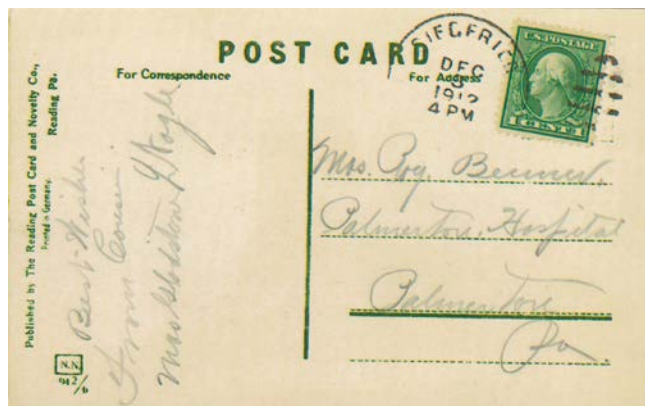 POST CARD
For Correspondence
For Address
SIEGFRIED
DEC
1912
4 PM
U.S. POSTAGE
1 CENT 1
Published by The Reading Post Card and Novelty Co.,
Reading Pa.
Printed in Germany.
N.N.
942/6
Best-Wishes
From Cousin
Mrs
Mrs.
Palmerton, Hospital
Palmerton
Pa